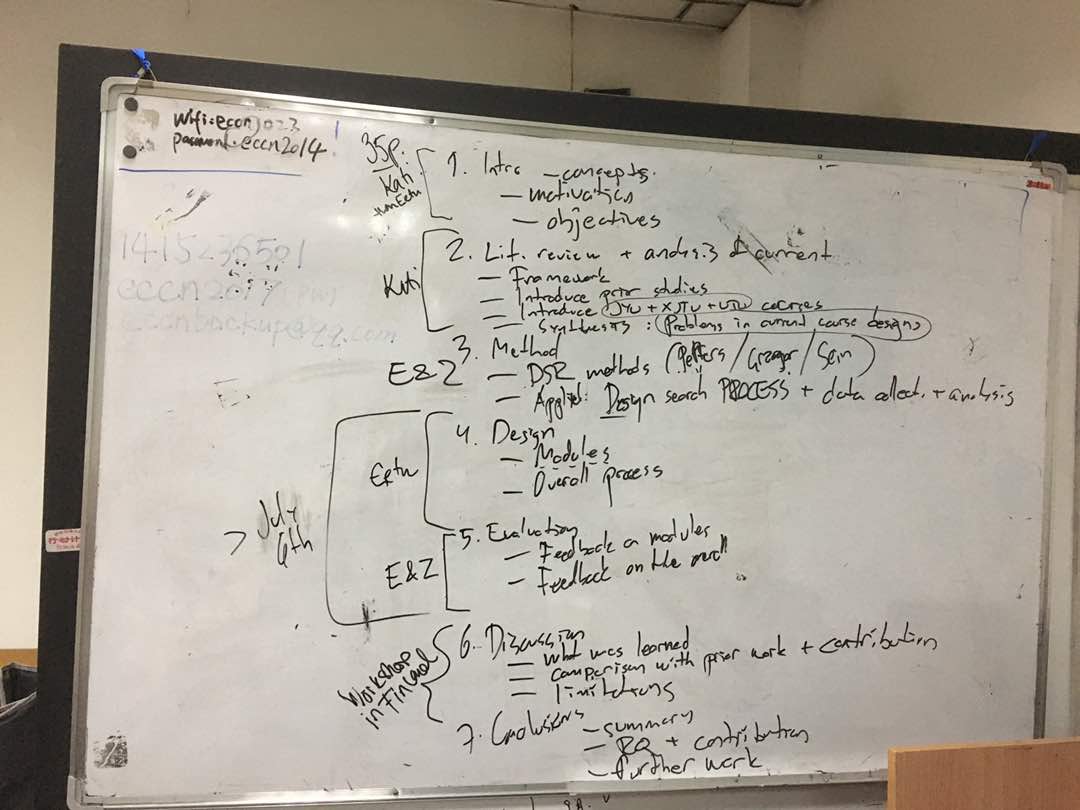 Wifi: eccn
password: eccn2014
35p.
Kati
1. Intro – concepts
– motivation
– objectives
eccnbackup@qq.com
Kati
2. Lit. review + analysis of current
– Framework
– Introduce prior studies
– Introduce JYU + XJTU + courses
– Synthesis: Problems in current course designs
E&Z
3. Method
– DSR methods (Peffers / Gregor / Sein)
– Applied: Design search PROCESS + data collect. + analysis
4. Design
– Modules
– Overall process
> July
6th
E&Z
5. Evaluation
– Feedback on modules
– Feedback on the overall
Workshop
in Finland
6. Discussion
– what was learned
– comparison with prior work + contribution
– limitations
7. Conclusions – summary
– RQ + contribution
– further work